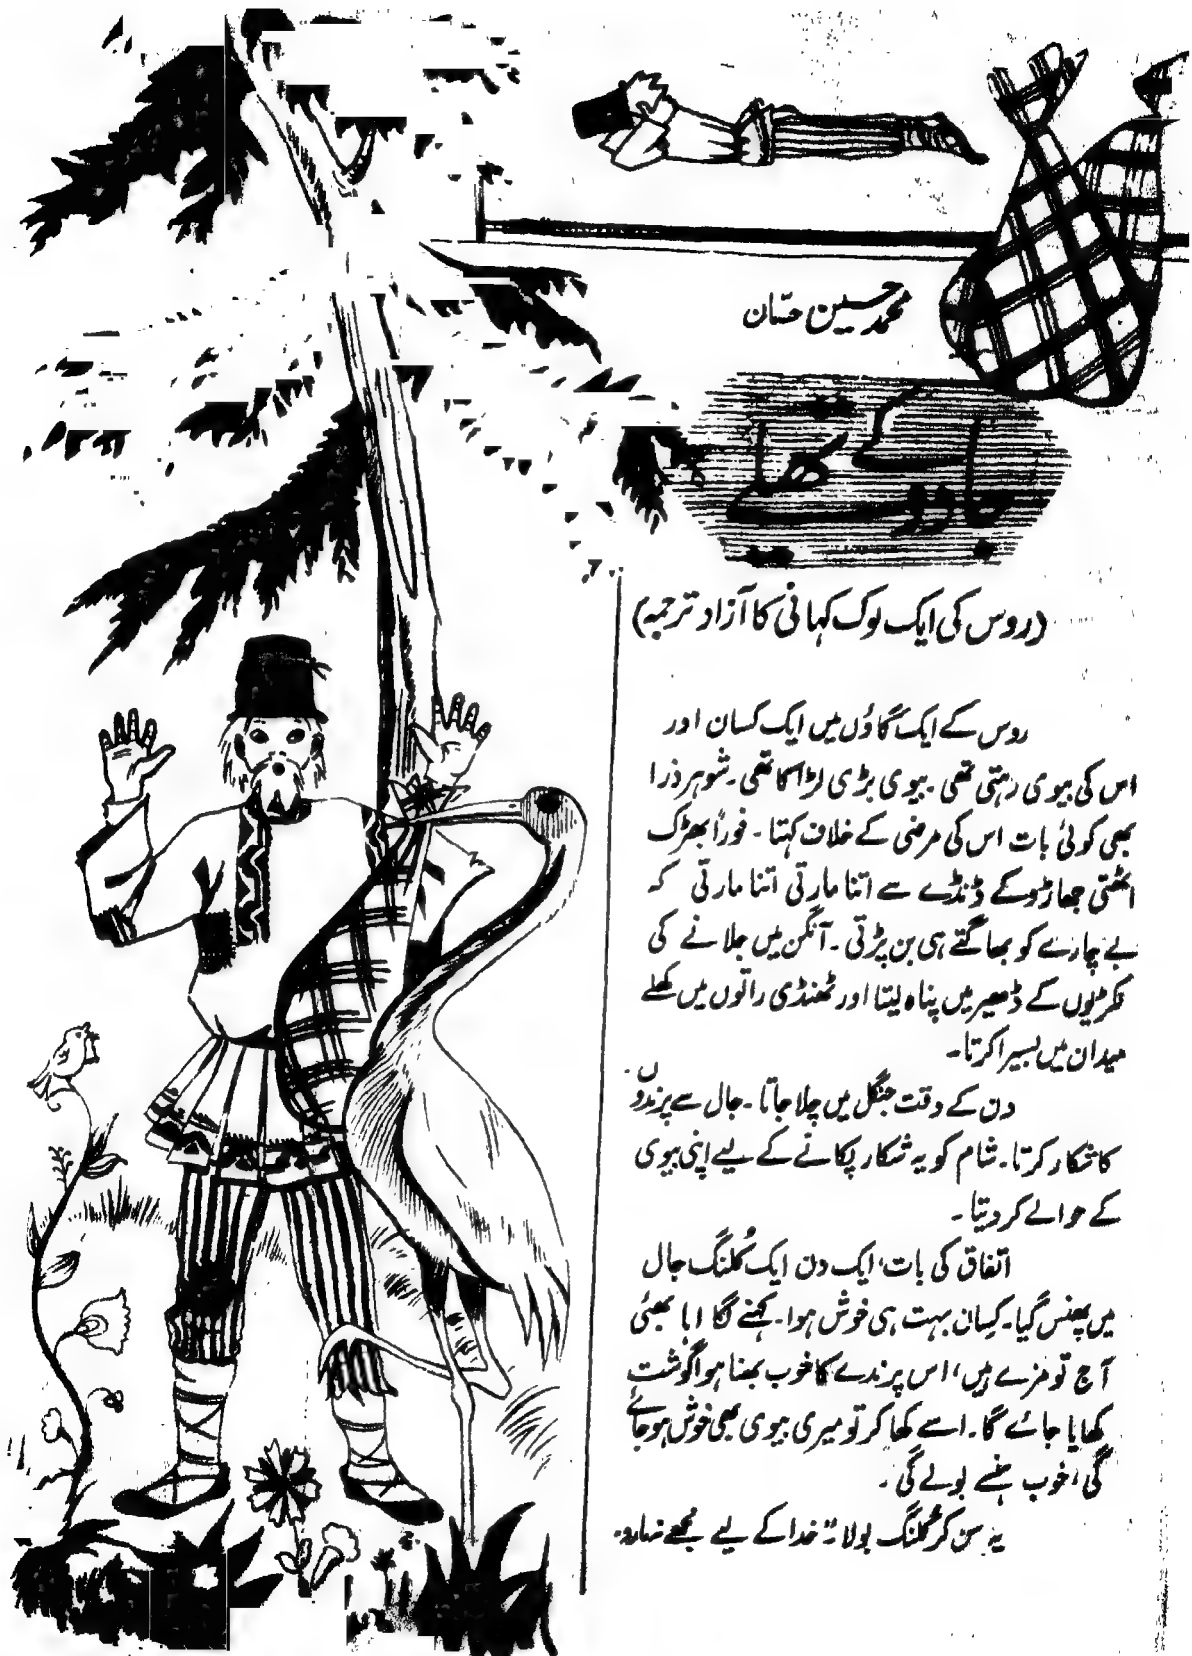 محمد حسین حسّان
جادو کے تھیلے
(روس کی ایک لوک کہانی کا آزاد ترجمہ)
روس کے ایک گاؤں میں ایک کسان اور
اس کی بیوی رہتی تھی۔ بیوی بڑی لڑاکا تھی۔ شوہر ذرا
بھی کوئی بات اس کی مرضی کے خلاف کہتا۔ فوراً بھڑک
اٹھتی جھاڑو کے ڈنڈے سے اتنا مارتی اتنا مارتی کہ
بے چارے کو بھاگتے ہی بن پڑتی۔ آنگن میں جلانے کی
لکڑیوں کے ڈھیر میں پناہ لیتا اور ٹھنڈی راتوں میں کھلے
میدان میں بسیرا کرتا۔
دن کے وقت جنگل میں چلا جاتا۔ جال سے پرندوں
کا شکار کرتا۔ شام کو یہ شکار پکانے کے لیے اپنی بیوی
کے حوالے کر دیتا۔
اتفاق کی بات، ایک دن ایک کُلنگ جال
میں پھنس گیا۔ کسان بہت ہی خوش ہوا۔ کہنے لگا اہا بھئی
آج تو مزے ہیں، اس پرندے کا خوب بھنا ہوا گوشت
کھایا جائے گا۔ اسے کھا کر تو میری بیوی بھی خوش ہو جائے
گی، خوب ہنسے بولے گی۔
یہ سن کر کُلنگ بولا: خدا کے لیے مجھے نہ مارو۔